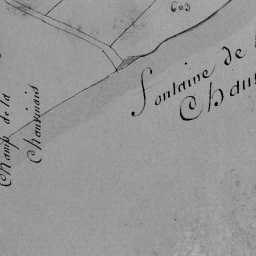 603
Fontaine de
Chau
Champ de la
Chauvinais